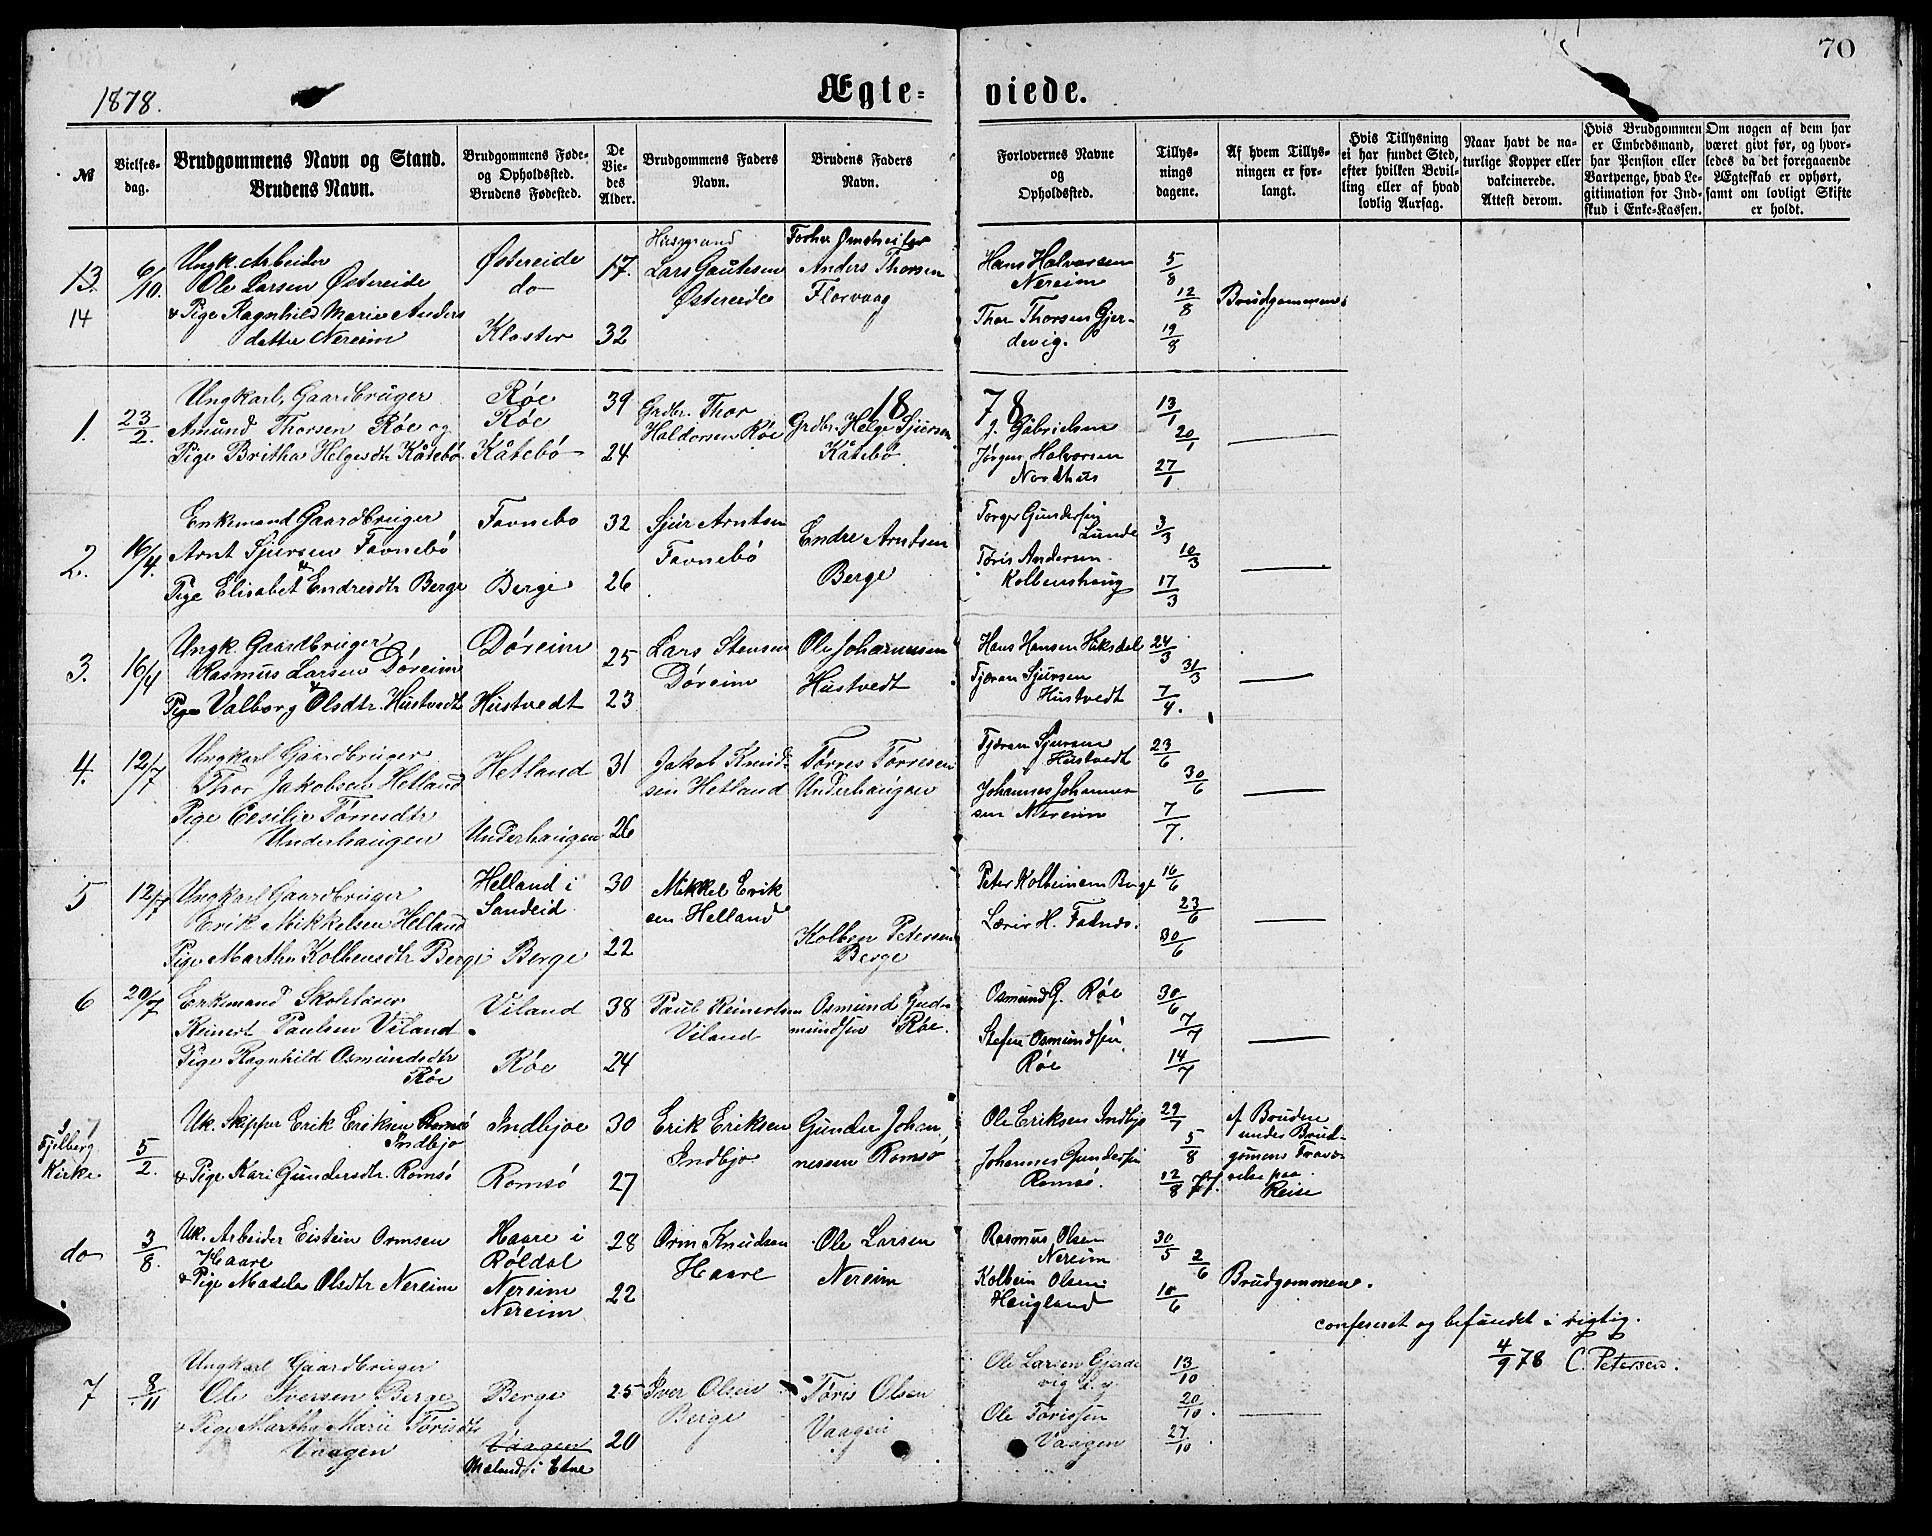 70
1878.
Ægte-viede.
№
Vielses-
dag.
Brudgommens Navn og Stand.
Brudens Navn.
Brudgommens Føde-
og Opholdssted.
Brudens Fødested.
De
Vie-
des
Alder.
Brudgommens Faders
Navn.
Brudens Faders
Navn.
Forlovernes Navne
og
Opholdssted.
Tillys-
nings
dagene.
Af hvem Tillys-
ningen er for-
langt.
Hvis Tillysning
ei har fundet Sted,
efter hvilken Bevil-
ling eller af hvad
lovlig Aarsag.
Naar havt de na-
turlige Kopper eller
vakcinerede.
Attest derom.
Hvis Brudgommen
er Embedsmand,
har Pension eller
Vartpenge, hvad Le-
gitimation for Ind-
skud i Enke-Kassen.
Om nogen af dem har
været givt før, og hvor-
ledes da det foregaaende
Ægteskab er ophørt,
samt om lovligt Skifte
er holdt.
13.
14
6/10.
Ungk. Arbeider
Ole Larsen Østereide
& Pige Ragnhild Marie Anders
datter Nereim
Østereide
do
Kloster
17.
32
Husmand
Lars Gautesen
Østereide
Anders Thorsen
Florvaag
Hans Halvorsen
Nereim
Thor Thorsen Gjer-
devig.
5/8
12/8
19/8
Brudgommen
1878
1.
23/2.
Ungkarl, Gaardbruger
Amund Thorsen Røe og
Pige Britha Helgesdtr Kåtebø
Røe
Røe
Kåtebø
39
24
Grdbr. Thor
Haldorsen Røe
Grdbr. Helge Sjursen
Kåtebø
J. Gabrielsen
Jørgen Halvorsen
Nordhus
13/1
20/1
27/1
2.
16/4.
Enkemand Gaardbruger
Arnt Sjursen Tavnebø
&
Pige Elisabet Endresdtr Berge
Tavnebø
Berge
32
26
Sjur Arntsen
Tavnebø
Endre Arntsen
Berge
Torger Gundersen
Lunde
Tøris Andersen
Kolbenshaug
3/3
10/3
17/3
3.
16/4
Ungk. Gaardbruger
Rasmus Larsen Døreim
&
Pige Valborg Olsdtr. Hustvedt
Døreim
Hustvedt
25
23
Lars Stensen
Døreim
Ole Johannesen
Hustvedt
Hans Hansen Hiksdal
Tjeran Sjursen
Hustvedt
24/3
31/3
7/4.
4.
12/7
Ungkarl Gaardbruger
Thor Jakobsen Hetland
Pige Cesilie Tørresdtr
Underhaugen
Hetland
Underhaugen
31
26
Jakob Knud-
sen Hetland
Tørres Tørresen
Underhaugen
Tjeran Sjursen
Hustvedt
Johannes Johannes-
sen Nereim
23/6
30/6
7/7.
5
12/7
Ungkarl Gaardbruger
Erik Mikkelsen Helland
Pige Martha Kolbensdtr Berge
Helland i
Sandeid
Berge
30
22
Mikkel Erik
sen Helland
Kolben Petersen
Berge
Peter Kolbeinsen Berge
16/6
23/6
30/6
6
29/7
Enkemand Skolelærer
Reinert Paulsen Viland
Pige Ragnhild Osmundsdtr
Røe
Viland
Røe
38
24
Paul Reinertsen
Viland
Osmund Gud-
mundsen Røe.
Osmund G. Røe
Stefen Osmundsen
Røe
30/6
7/7
14/7
Fjelberg
Kirke
5/2.
Uk. Skipper Erik Eriksen Romsø
Indbjo
& Pige Kari Gundersdtr. Romsø
Indbjoe
Romsø
30
27
Erik Eriksen
Indbjo
Gunder Johan-
nessen Romsø
Ole Eriksen Indbjo
Johannes Gundersen
Romsø.
29/7
5/8
12/8 77.
af Bruden
under Brud-
gomens Fravæ-
relse paa
Reise
do
3/8.
Uk. Arbeider Eistein Ormsen
Haare
& Pige Madela Olsdtr Nereim
Haare i
Røldal
Nereim
Nereim
28
22
Orm Knudsen
Haare
Ole Larsen
Nereim
Rasmus Olsen
Nereim
Kolbein Olsen
Haugland
30/5
2/6
10/6
Brudgommen.
confereret og befundet i rigtig.
4/9 78 C. Petersen.
7
8/11
Ungkarl Gaardbruger
Ole Iversen Berge
& Pige Martha Marie Tørisdtr
Vaagen
Berge
Vaagen
Mæland i Etne
25
20
Iver Olsen
Berge
Tøris Olsen
Vaagen
Ole Larsen Gjerde
vig
Ole Tørissen
Vaagen
13/10
20/10.
27/10